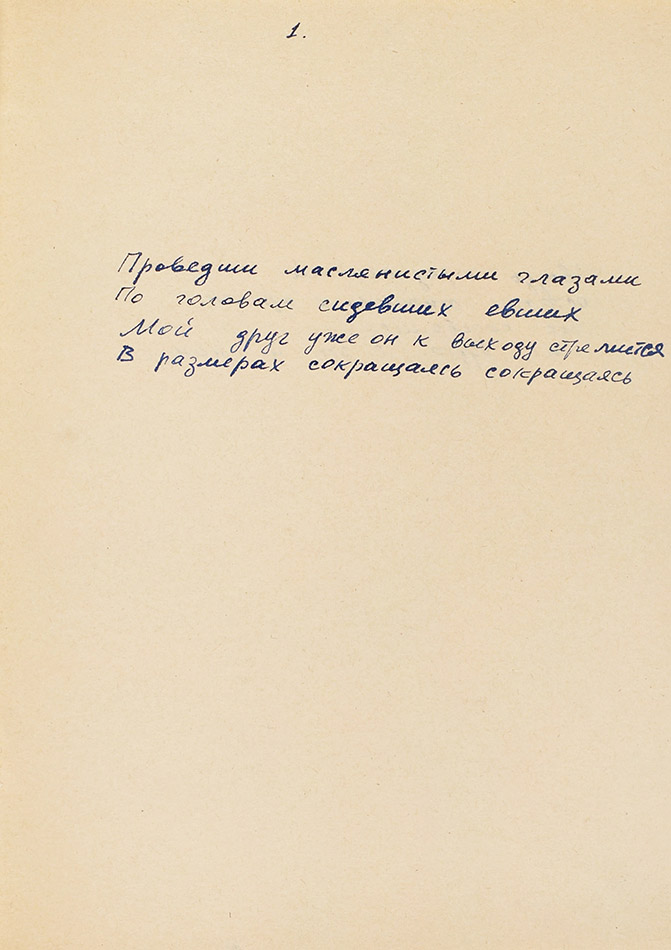 1.
Проведши маслянистыми глазами
По головам сидевших евших
Мой друг уже он к выходу стремится
В размерах сокращаясь сокращаясь